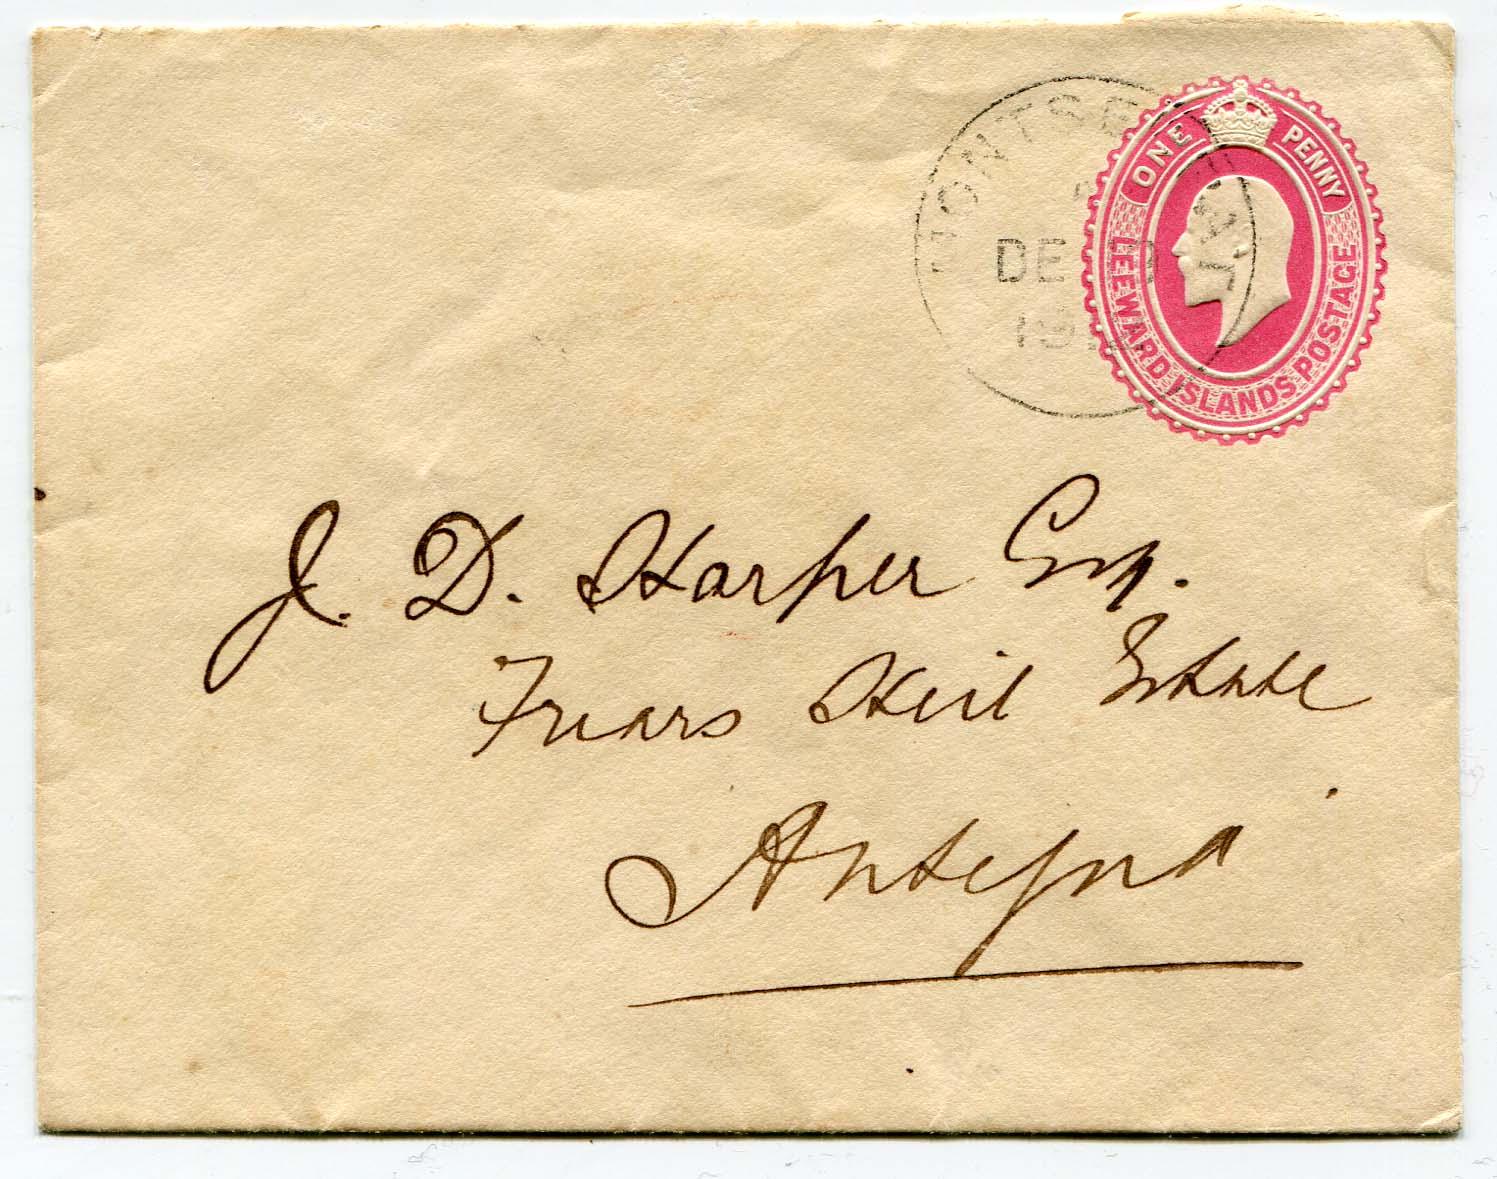 MONTSERRAT
DE
19
ONE PENNY
LEEWARD ISLANDS POSTAGE
J. D. Harper Esq.
Friars Hill Estate
Antigua